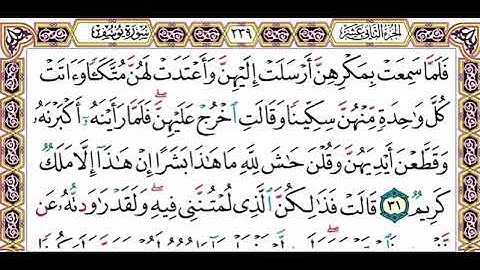 الجزء الثاني عشر ٢٣٩ سورة يوسف
فَلَمَّا سَمِعَتْ بِمَكْرِهِنَّ أَرْسَلَتْ إِلَيْهِنَّ وَأَعْتَدَتْ لَهُنَّ مُتَّكَـًٔا وَءَاتَتْ
كُلَّ وَٰحِدَةٍ مِّنْهُنَّ سِكِّينًا وَقَالَتِ ٱخْرُجْ عَلَيْهِنَّ ۖ فَلَمَّا رَأَيْنَهُۥٓ أَكْبَرْنَهُۥ
وَقَطَّعْنَ أَيْدِيَهُنَّ وَقُلْنَ حَٰشَ لِلَّهِ مَا هَٰذَا بَشَرًا إِنْ هَٰذَآ إِلَّا مَلَكٌ
كَرِيمٌ ٣١ قَالَتْ فَذَٰلِكُنَّ ٱلَّذِى لُمْتُنَّنِى فِيهِ ۖ وَلَقَدْ رَٰوَدتُّهُۥ عَن